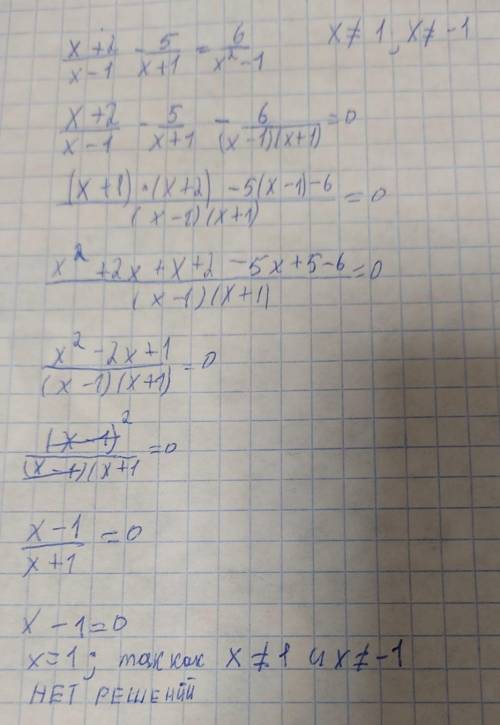 (x+2)/(x-1) - 5/(x+1) = 6/(x²-1)     x≠1; x≠-1
(x+2)/(x-1) - 5/(x+1) - 6/((x-1)(x+1)) = 0
((x+1)·(x+2) - 5(x-1) - 6)/((x-1)(x+1)) = 0
(x² + 2x + x + 2 - 5x + 5 - 6)/((x-1)(x+1)) = 0
(x² - 2x + 1)/((x-1)(x+1)) = 0
(x-1)²/((x-1)(x+1 = 0
(x-1)/(x+1) = 0
x - 1 = 0
x=1; так как x≠1 и x≠-1
НЕТ РЕШЕНИЙ